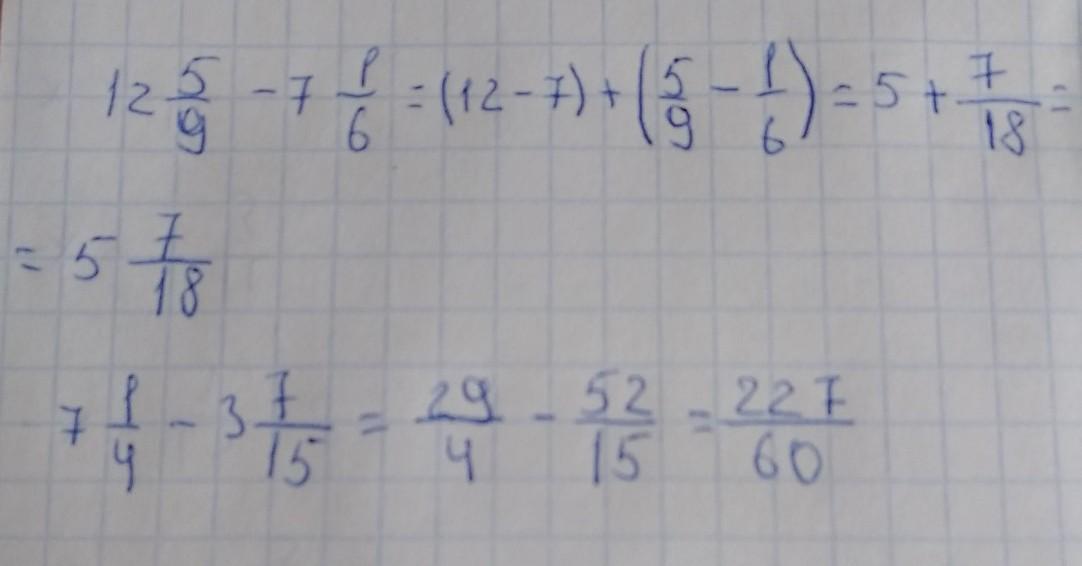 12 5/9 - 7 1/6 = (12 - 7) + (5/9 - 1/6) = 5 + 7/18 =
= 5 7/18
7 1/4 - 3 7/15 = 29/4 - 52/15 = 227/60